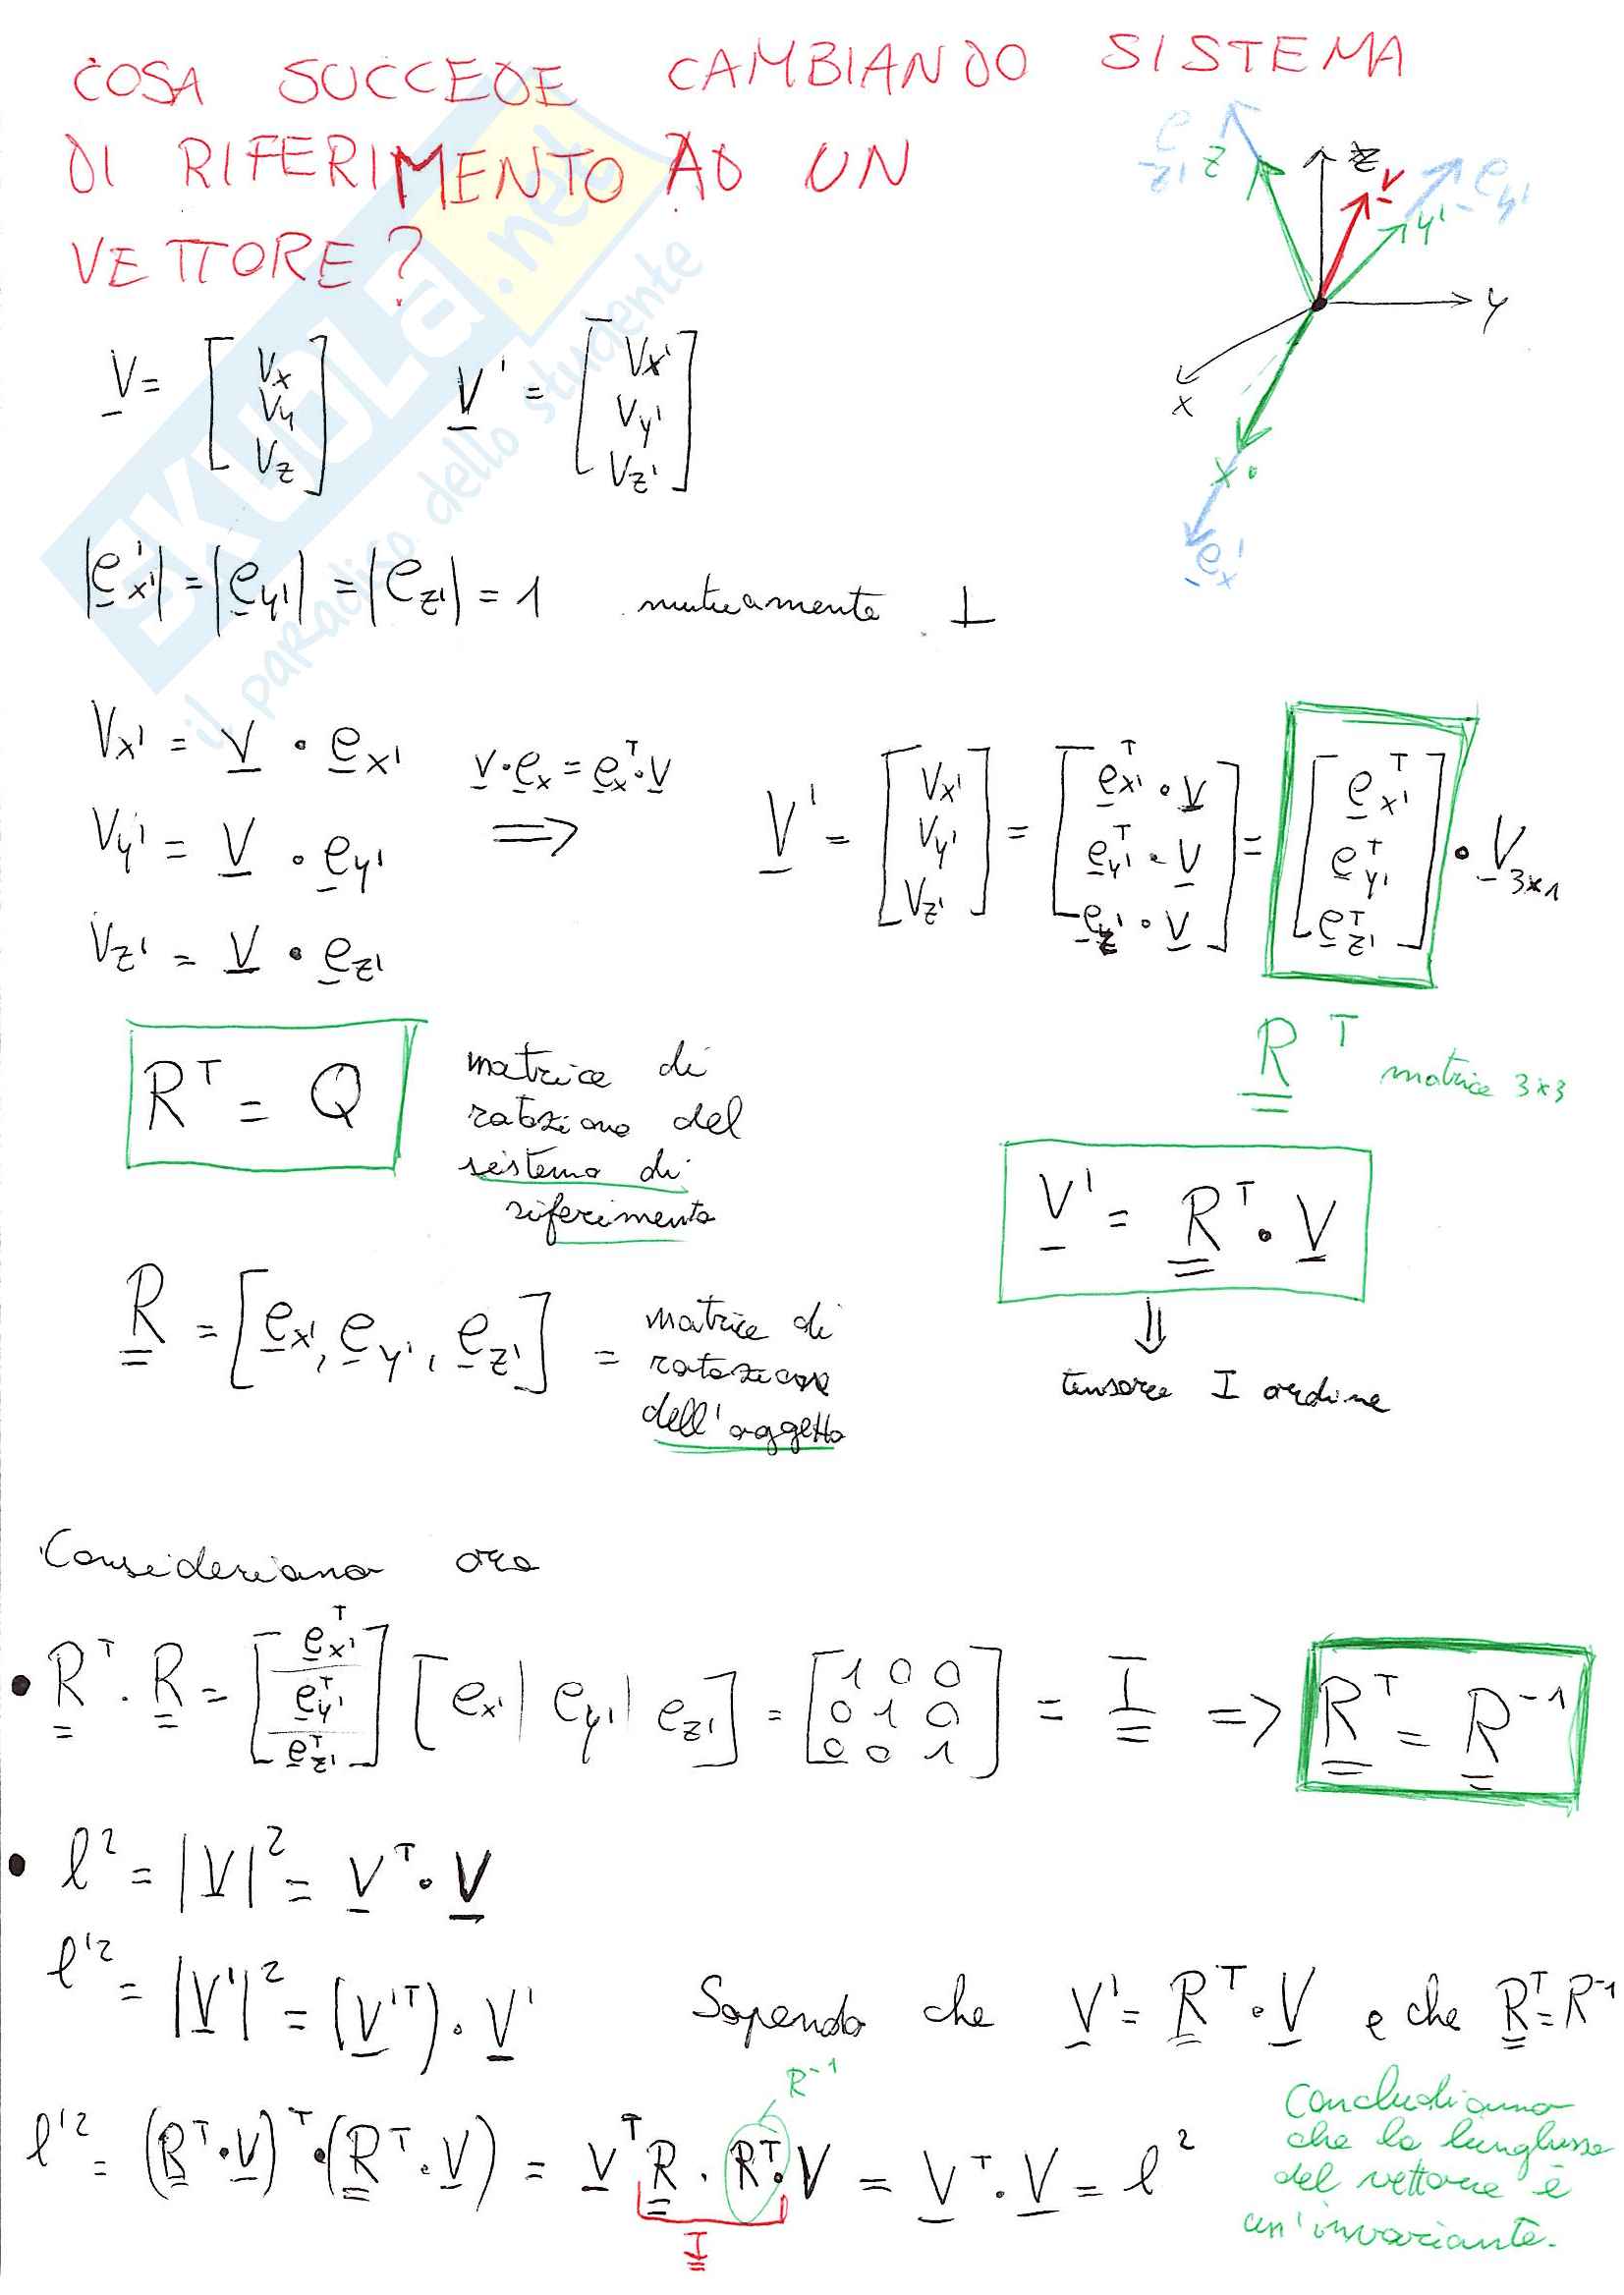 COSA SUCCEDE CAMBIANDO SISTEMA
DI RIFERIMENTO AD UN
VETTORE?
z' z v y' e_y'
e_z'
y
x
x'
e_x'
V = [Vx Vy Vz] V' = [Vx' Vy' Vz']
|e'x'| = |e_y'| = |e_z'| = 1 mutuamente ⊥
Vx' = V • e_x' V • e_x = e_x^T • V
Vy' = V • e_y' ⟹ V' = [Vx' Vy' Vz'] = [e_x'^T • V e_y'^T • V e_z' • V] = [e_x'^T e_y'^T e_z'^T] • V 3x1
Vz' = V • e_z'
R^T matrice 3x3
R^T = Q matrice di
rotazione del
sistema di
riferimento
V' = R^T • V
⇓
tensore I ordine
R = [e_x', e_y', e_z'] = matrice di
rotazione
dell'oggetto
Consideriamo ora
• R^T . R = [e_x'^T e_y'^T e_z'^T] [e_x' | e_y' | e_z'] = [1 0 0 0 1 0 0 0 1] = I => R^T = R^-1
• l² = |V|² = V^T • V
l'² = |V'|² = (V'^T) • V' Sapendo che V' = R^T • V e che R^T = R^-1
R^-1
l'² = (R^T • V)^T • (R^T • V) = V^T R . R^T • V = V^T . V = l²
I
Concludiamo
che la lunghezza
del vettore è
un'invariante.
SKUOLA.net
il paradiso dello studente